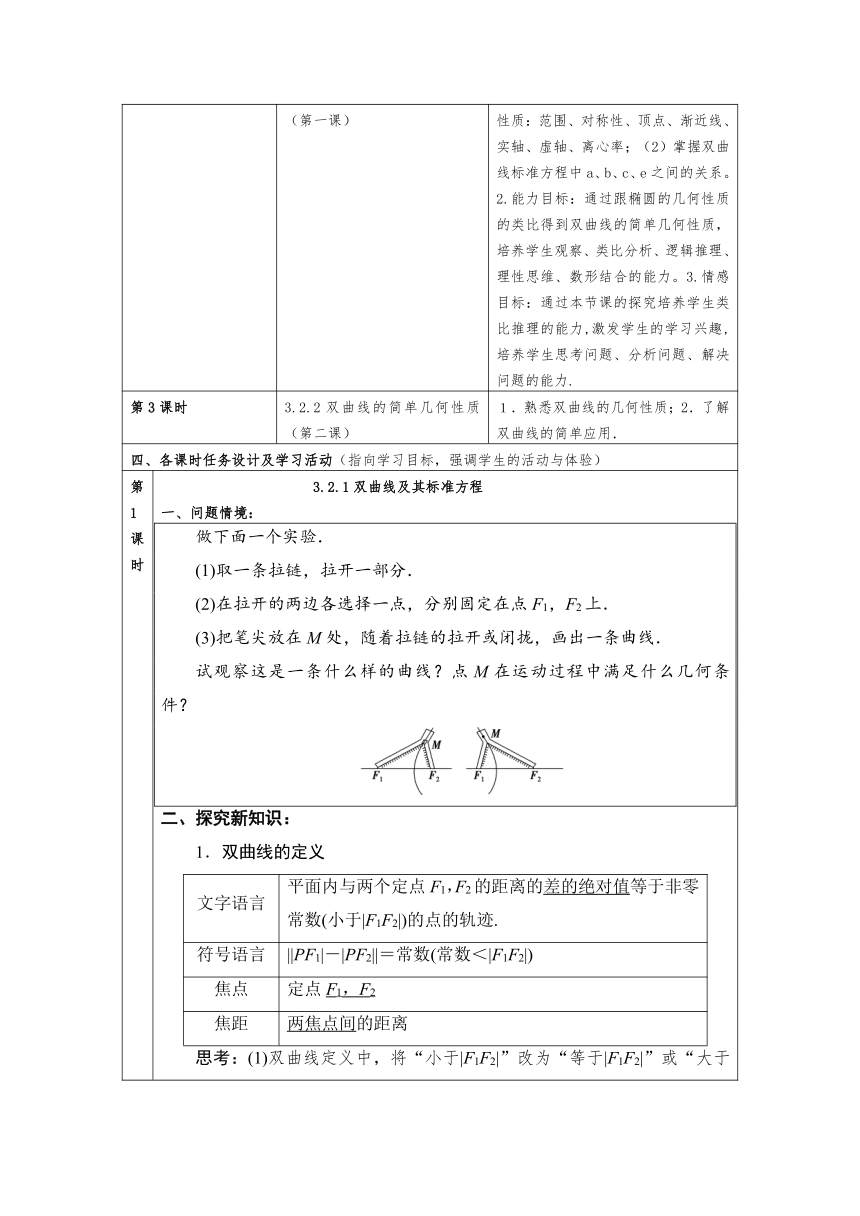 （第一课）
性质：范围、对称性、顶点、渐近线、
实轴、虚轴、离心率；（2）掌握双曲
线标准方程中 a、b、c、e 之间的关系。
2.能力目标：通过跟椭圆的几何性质
的类比得到双曲线的简单几何性质，
培养学生观察、类比分析、逻辑推理、
理性思维、数形结合的能力。3.情感
目标：通过本节课的探究培养学生类
比推理的能力,激发学生的学习兴趣,
培养学生思考问题、分析问题、解决
问题的能力.
第 3 课时
3.2.2 双曲线的简单几何性质
（第二课）
1．熟悉双曲线的几何性质；2．了解
双曲线的简单应用．
四、各课时任务设计及学习活动（指向学习目标，强调学生的活动与体验）
第
1
课
时
3.2.1 双曲线及其标准方程
一、问题情境：
做下面一个实验．
(1)取一条拉链，拉开一部分．
(2)在拉开的两边各选择一点，分别固定在点 F1，F2 上．
(3)把笔尖放在 M 处，随着拉链的拉开或闭拢，画出一条曲线．
试观察这是一条什么样的曲线？点 M 在运动过程中满足什么几何条
件？
M
F1 F2
M
F1 F2
二、探究新知识：
1．双曲线的定义
文字语言
平面内与两个定点 F1,F2 的距离的差的绝对值等于非零
常数(小于|F1F2|)的点的轨迹.
符号语言
||PF1|－|PF2||＝常数(常数＜|F1F2|)
焦点
定点 F1，F2
焦距
两焦点间的距离
思考：(1)双曲线定义中，将“小于|F1F2|”改为“等于|F1F2|”或“大于